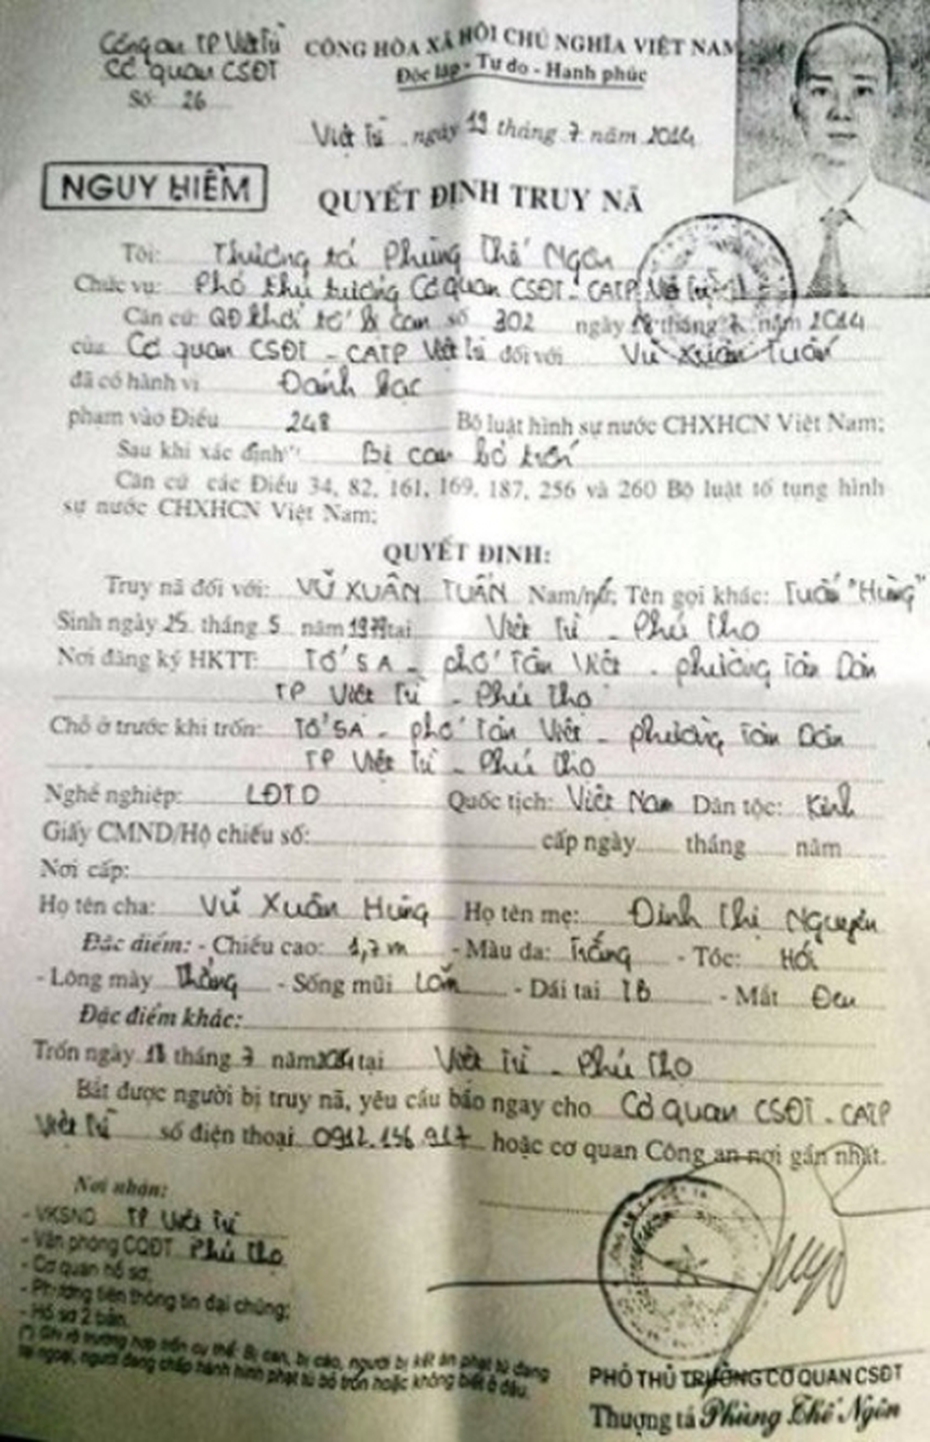 Công an TP Việt Trì
CỘNG HÒA XÃ HỘI CHỦ NGHĨA VIỆT NAM
Cơ quan CSĐT
Độc lập - Tự do - Hạnh phúc
Số: 26
Việt Trì, ngày 19 tháng 7 năm 2014
NGUY HIỂM
QUYẾT ĐỊNH TRUY NÃ
Tôi: Thượng tá Phùng Thế Ngân
Chức vụ: Phó thủ trưởng Cơ quan CSĐT - CATP Việt Trì
Căn cứ: QĐ khởi tố bị can số 302 ngày tháng 7 năm 2014
của Cơ quan CSĐT - CATP Việt Trì đối với Vũ Xuân Tuấn
đã có hành vi Đánh bạc
phạm vào Điều 248 Bộ luật hình sự nước CHXHCN Việt Nam;
Sau khi xác định(*) Bị can bỏ trốn
Căn cứ các Điều 34, 82, 161, 169, 187, 256 và 260 Bộ luật tố tụng hình
sự nước CHXHCN Việt Nam;
QUYẾT ĐỊNH:
Truy nã đối với: VŨ XUÂN TUẤN Nam/nữ; Tên gọi khác: Tuấn "Hùng"
Sinh ngày 25 tháng 5 năm 1979 tại Việt Trì - Phú Thọ
Nơi đăng ký HKTT: Tổ 5A - phố Tân Việt - phường Tân Dân
TP Việt Trì - Phú Thọ
Chỗ ở trước khi trốn: Tổ 5A - phố Tân Việt - phường Tân Dân
TP Việt Trì - Phú Thọ
Nghề nghiệp: LĐTD Quốc tịch: Việt Nam Dân tộc: Kinh
Giấy CMND/Hộ chiếu số: cấp ngày tháng năm
Nơi cấp:
Họ tên cha: Vũ Xuân Hùng Họ tên mẹ: Đinh Thị Nguyên
Đặc điểm: - Chiều cao: 1,7 m - Màu da: Trắng - Tóc: Hói
- Lông mày Thẳng - Sống mũi Lõm - Dái tai TB - Mắt Đen
Đặc điểm khác:
Trốn ngày 18 tháng 7 năm 2014 tại Việt Trì - Phú Thọ
Bắt được người bị truy nã, yêu cầu báo ngay cho Cơ quan CSĐT - CATP
Việt Trì số điện thoại 0912.156.917 hoặc cơ quan Công an nơi gần nhất.
Nơi nhận:
- VKSND TP Việt Trì
- Văn phòng CQĐT Phú Thọ
- Cơ quan hồ sơ;
- Phương tiện thông tin đại chúng;
- Hồ sơ 2 bản.
(*) Ghi rõ trường hợp trốn cụ thể: Bị can, bị cáo, người bị kết án phạt tù đang
tại ngoại, người đang chấp hành hình phạt tù bỏ trốn hoặc không biết ở đâu.
PHÓ THỦ TRƯỞNG CƠ QUAN CSĐT
Thượng tá Phùng Thế Ngân